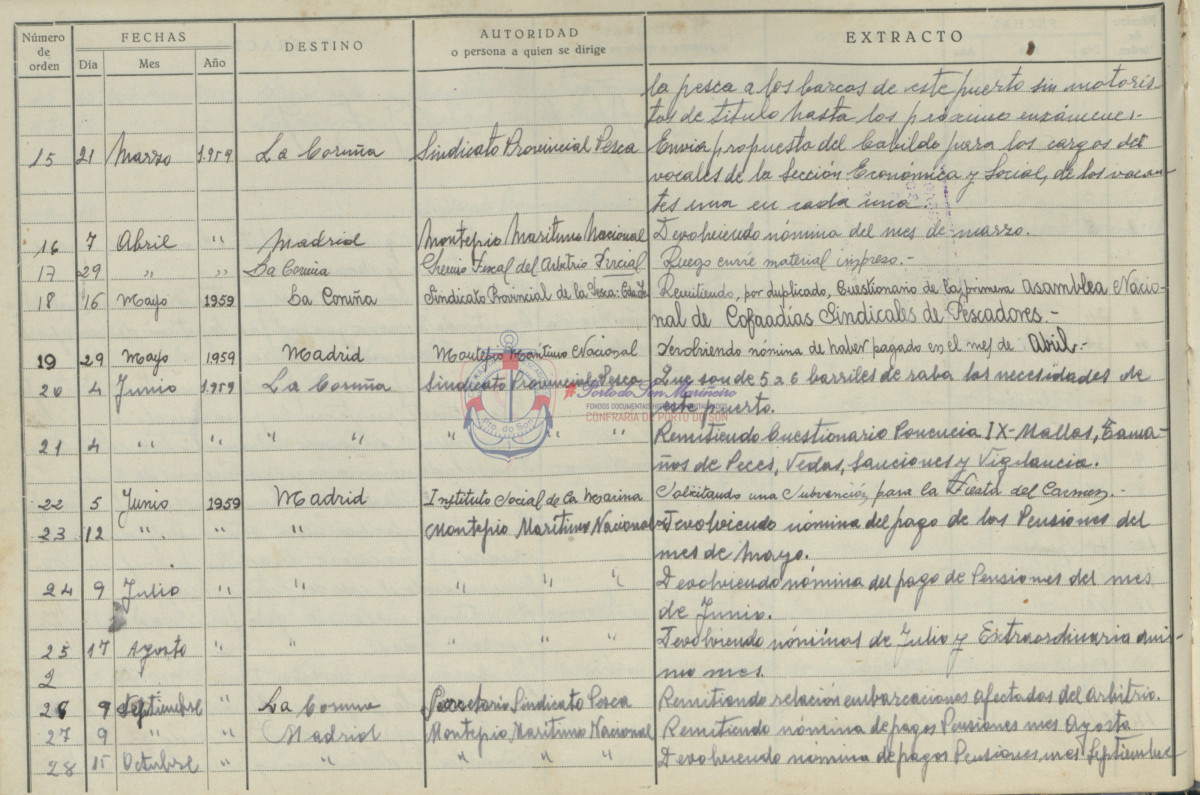 Número de orden FECHAS DESTINO AUTORIDAD o persona a quien se dirige EXTRACTO
Día Mes Año
la pesca a los barcos de este puerto sin motoris-
tas de titulo hasta los próximo exámenes.-
15 21 Marzo 1.959 La Coruña Sindicato Provincial Pesca Envia propuesta del Cabildo para los cargos de
vocales de la Sección Económica y Social, de los vacan-
tes una en cada una
16 7 Abril " Madrid Montepio Maritimo Nacional Devolviendo nómina del mes de marzo.
17 29 " " La Coruña Gremio Fiscal del Arbitrio Ruego envie material impreso.-
18 16 Mayo 1959 La Coruña Sindicato Provincial de la Pesca: Remitiendo, por duplicado, Cuestionario de la primera Asamblea Nacio-
nal de Cofaadías Sindicales de Pescadores.-
19 29 Mayo 1959 Madrid Montepio Maritimo Nacional Devolviendo nómina de haber pagado en el mes de Abril.-
20 4 Junio 1.959 La Coruña Sindicato Provincial Pesca Que son de 5 a 6 barriles de raba las necesidades de
este puerto.
21 4 " " " " " " " Remitiendo Cuestionario Ponencia IX-Mallas, Tama-
ños de Peces, Vedas, Sanciones y Vigilancia.
22 5 Junio 1959 Madrid Instituto Social de la Marina Solicitando una Subvención, para la Fiesta del Carmen.-
23 12 " " " Montepio Maritimo Nacional Devolviendo nómina del pago de las Pensiones del
mes de mayo.
24 9 Julio " " " " " Devolviendo nómina del pago de Pensiones del mes
de Junio.
25 17 Agosto " " " " " Devolviendo nóminas de Julio y Extraordinaria
mo mes.
2
26 9 Septiembre " La Coruña Secretario Sindicato Pesca Remitiendo relación embarcaciones afectadas del arbitrio.
27 9 " " Madrid Montepio Maritimo Nacional Remitiendo nómina de pagos Pensiones mes Agosto
28 15 Octubre " " " " " Devolviendo nómina de pagos Pensiones, mes Septiembre
Pto. do Son
Porto do Son Mariñeiro
CONFRARIA DE PORTO DO SON